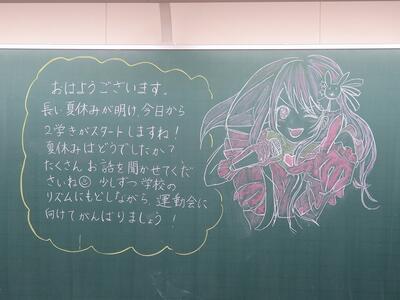 おはようございます。
長い夏休みが明け、今日から
2学きがスタートしますね!
夏休みはどうでしたか?
たくさんお話を聞かせてくだ
さいね☺ 少しずつ学校の
リズムにもどしながら、運動会に
向けてがんばりましょう!